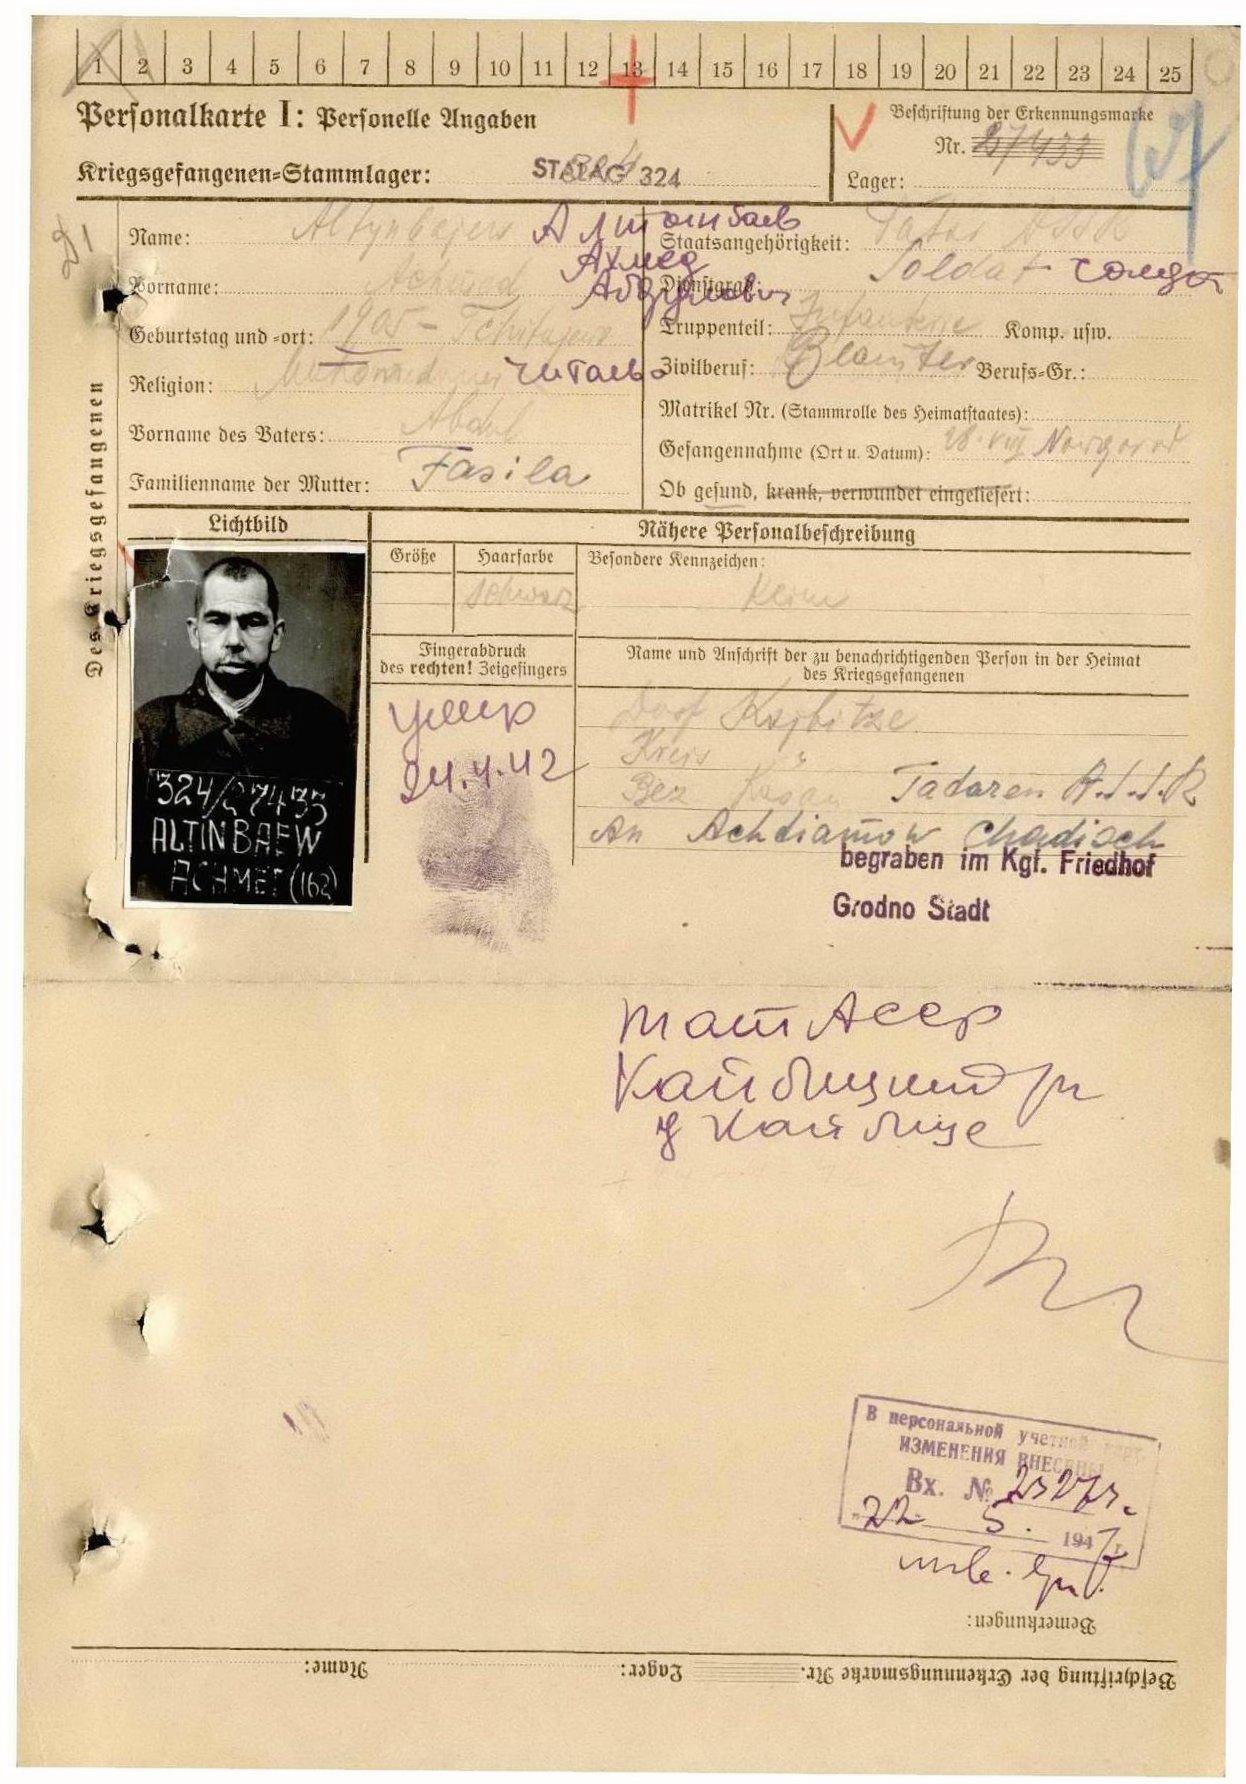 1 2 3 4 5 6 7 8 9 10 11 12 13 14 15 16 17 18 19 20 21 22 23 24 25
Personalkarte I: Personelle Angaben
Beschriftung der Erkennungsmarke
Nr. 27433
Kriegsgefangenen-Stammlager: STALAG 324
Lager:
Des Kriegsgefangenen
Name: Алтынбаев
Ахмед
Vorname: Абдулович
Geburtstag und -ort: 1905 -
Religion: читаево
Vorname des Vaters: Abdul
Familienname der Mutter: Fasila
Staatsangehörigkeit: Tatar ASSR
Dienstgrad: Soldat солдат
Truppenteil: Infanterie Komp. usw.
Zivilberuf: Beamter Berufs-Gr.:
Matrikel Nr. (Stammrolle des Heimatstaates):
Gefangennahme (Ort u. Datum): 28. VIII Nowgorod
Ob gesund, krank, verwundet eingeliefert:
Lichtbild
Nähere Personalbeschreibung
Größe
Haarfarbe
schwarz
Besondere Kennzeichen:
Keine
Fingerabdruck
des rechten! Zeigefingers
умер
24.4.42
Name und Anschrift der zu benachrichtigenden Person in der Heimat
des Kriegsgefangenen
Dorf Kajbitze
Kreis "
Bez Kasan Tadaren A.S.S.R
An Achdiamow Chadisch
begraben im Kgf. Friedhof
Grodno Stadt
324/27433
ALTINBAEW
ACHMET (162)
Тат Асср
Кайбицкий рн
Кайбице
В персональной учетной карт.
ИЗМЕНЕНИЯ ВНЕСЕНЫ
Вх. №
"22" 5. 1947 г.
Bemerkungen:
Name:
Lager:
Beschriftung der Erkennungsmarke Nr.